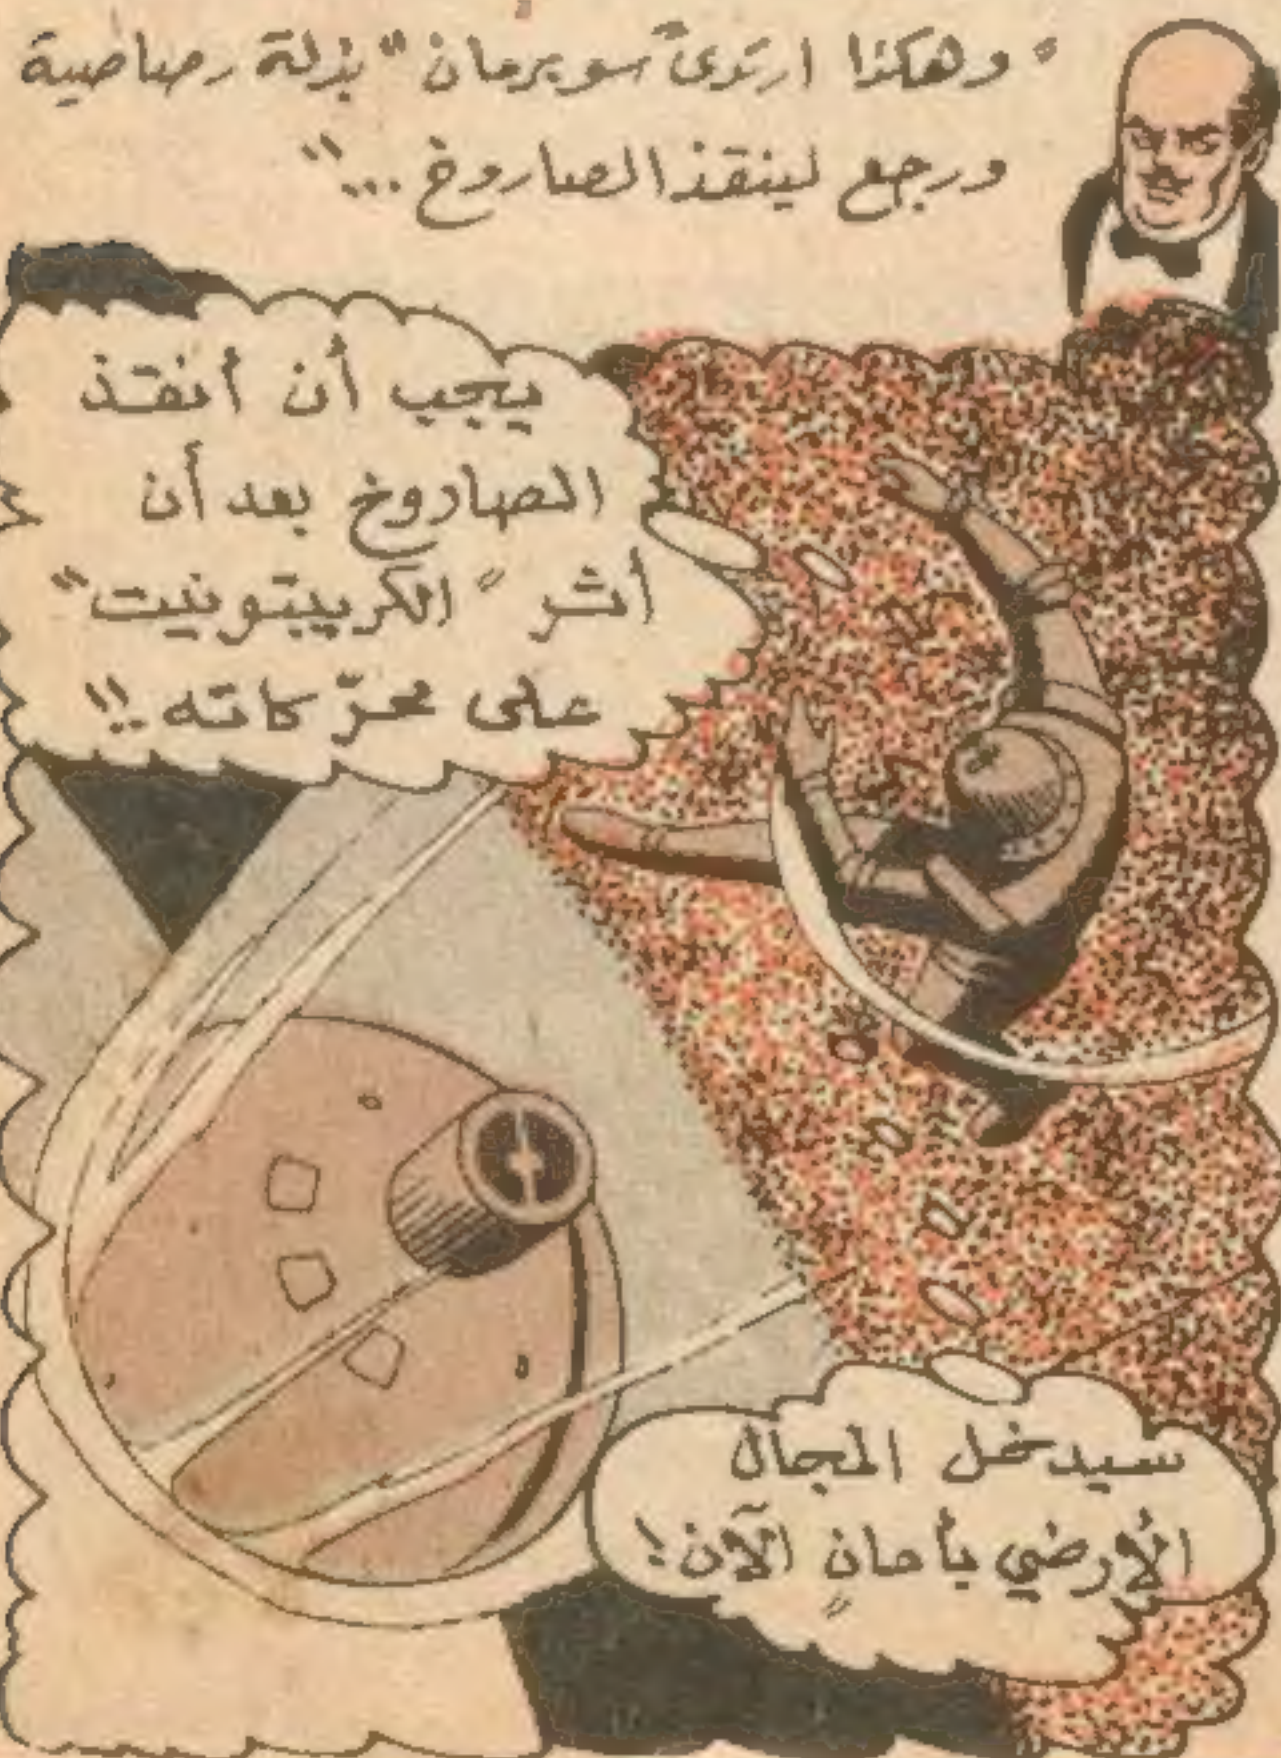 "وهكذا ارتدى "سوبرمان" بذلة رصاصية
ورجع لينقذ الصاروخ ..."
يجب أن أنقذ
الصاروخ بعد أن
أثر "الكريبتونيت"
على محرّكاته !!
سيدخل المجال
الأرضي بأمانٍ الآن !